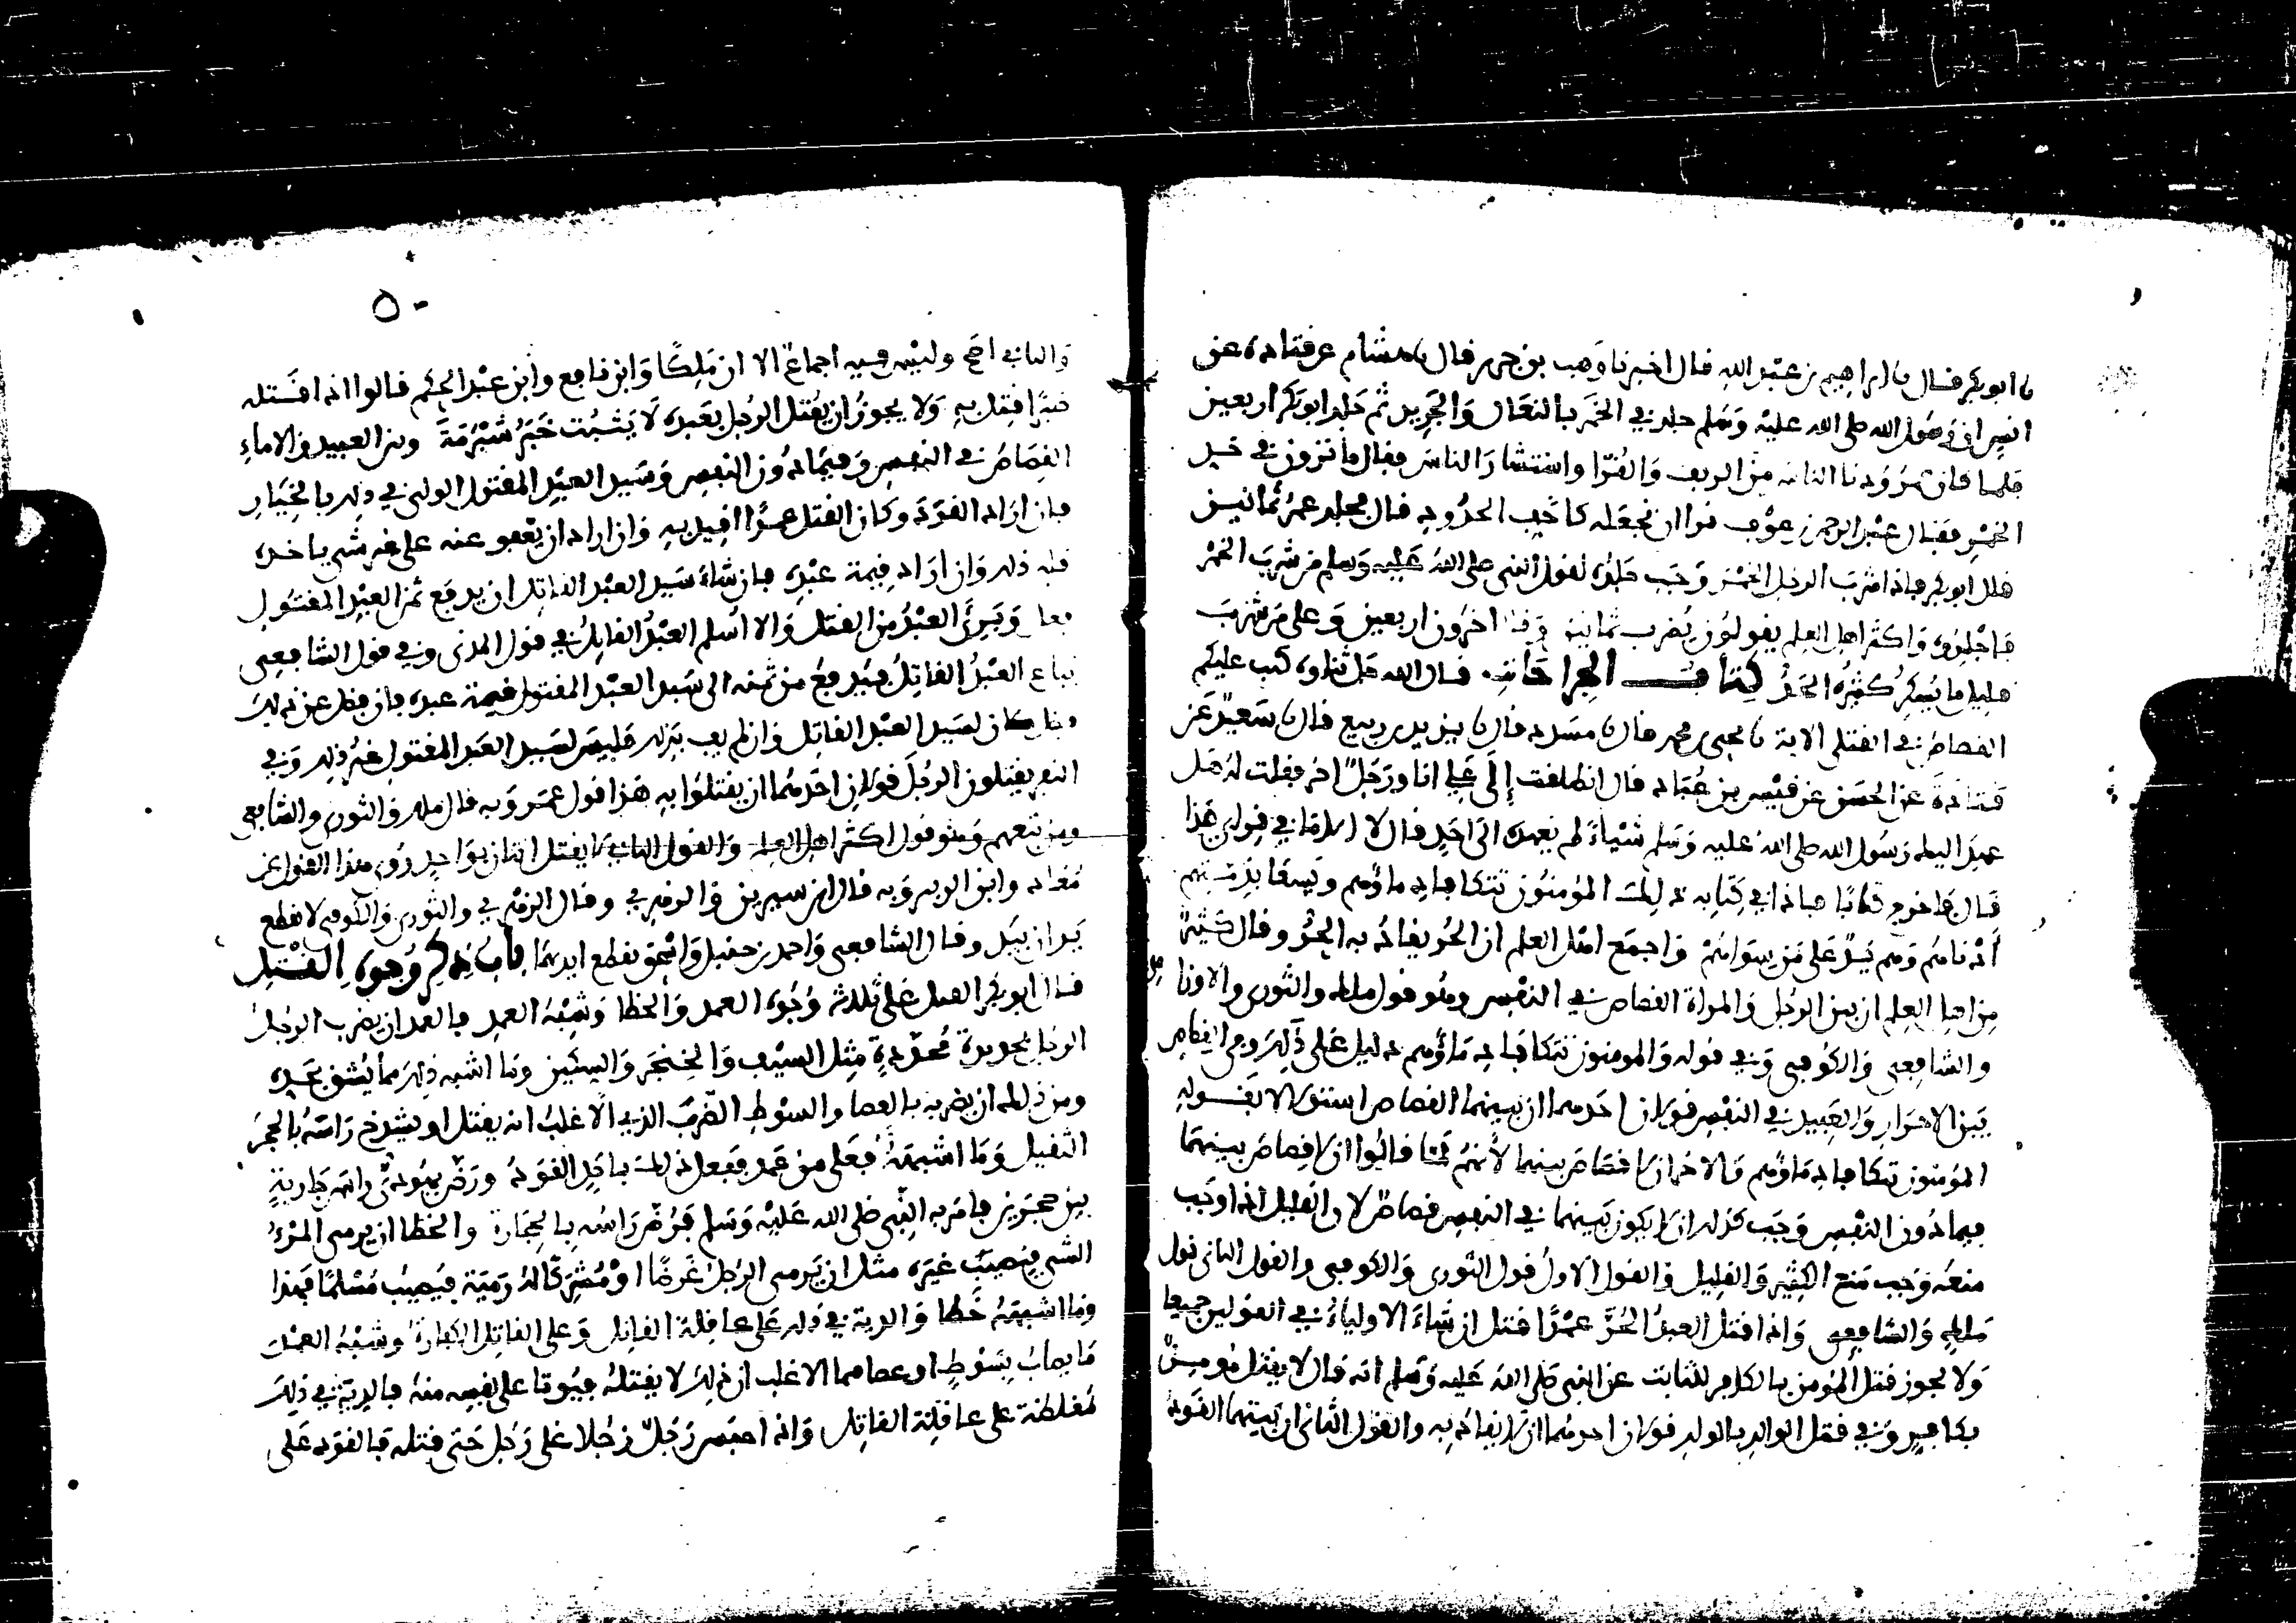 نا ابو بكر قال نا ابراهيم بن عبد الله قال اخبرنا وهب بن جرير قال نا هشام عن قتادة عن
انس ان رسول الله صلى الله عليه وسلم جلد في الخمر بالنعال والجريد ثم جلد ابو بكر اربعين
فلما كان عمر ودنا الناس من الريف والقرا واستشار الناس فقال ما ترون في
الخمر فقال عبد الرحمن بن عوف نرا ان نجعله كاخف الحدود قال فجلد عمر ثمانين
قال ابو بكر فاذا شرب الرجل الخمر وجب جلده لقول النبي صلى الله عليه وسلم من شرب الخمر
فاجلدوه واكثر اهل العلم يقولون يضرب ثمانين وقال اخرون اربعين وعلى من شرب
قليل ما يسكر كثيره الحد كتاب الجراحات قال الله جل ثناوه كتب عليكم
القصاص في القتلى الاية نا يحيى بن محمد قال نا مسدد قال نا يزيد بن زريع قال نا سعيد عن
قتادة عن الحسن عن قيس بن عباد قال انطلقت إلى علي انا ورجل اخر فقلت له هل
عهد اليك رسول الله صلى الله عليه وسلم شيأ لم يعهده الى احد قال لا الا ما في قرابي هذا
قال فاخرج كتابا فاذا في كتابه ذلك المؤمنون تتكافا دماؤهم ويسعا بذمتهم
أدناهم وهم يد على من سواهم واجمع اهل العلم ان الحر يقاد به الحر وقال كثير
من اهل العلم ان بين الرجل والمراة القصاص في النفس وهو قول ملك والثوري والاوزا
والشافعي والكوفي وفي قوله والمومنون تتكافا دماؤهم دليل على ذلك وفي القصاص
بين الاحرار والعبيد في النفس قولان احدهما ان بينهما القصاص استدلالا بقوله
المؤمنون تتكافا دماؤهم والاخر ان لا قصاص بينهما لأنهم لما قالوا ان لا قصاص بينهما
فيما دون النفس وجب كذلك ان لا يكون بينهما في النفس قصاص لان القليل اذا وجب
منعه وجب منع الكثير والقليل والقول الاول قول الثوري والكوفي والقول الثاني قول
ملك والشافعي واذا قتل العبد الحر عمدًا قتل ان شاء الاولياء في القولين جميعا
ولا يجوز قتل المؤمن بالكافر للثابت عن النبي صلى الله عليه وسلم انه قال لا يقتل مومن
بكافر وفي قتل الوالد بالولد قولان احدهما ان لا يقاد به والقول الثاني ان بينهما القود
٥٠
والثاني اصح وليس فيه اجماع الا ان ملكًا وابن نافع وابن عبد الحكم قالوا اذا قتله
قتل به ولا يجوز ان يقتل الرجل بعبده لا يثبت خبر سمرة وبين العبيد والاماء
القصاص في النفس وفيما دون النفس وسيد العبد المقتول الولي في ذلك بالخيار
فان اراد القود وكان القتل عمدًا اقيد به وان اراد ان يعفو عنه على غير شي ياخذه
فله ذلك وان اراد قيمة عبده فان شاء سيد العبد القاتل ان يدفع ثمن العبد المقتول
فعل وبرئ العبد من القتل والا اسلم العبد القاتل في قول المدني وفي قول الشافعي
يباع العبد القاتل فيدفع من ثمنه الى سيد العبد المقتول قيمة عبده فان فضل عن ذلك
فضل كان لسيد العبد القاتل وان لم يف بذلك فليس لسيد العبد المقتول غير ذلك وفي
النفر يقتلون الرجل قولان احدهما ان يقتلوا به هذا قول عمر وبه قال ملك والثوري والشافعي
ومن تبعهم وهو قول اكثر اهل العلم والقول الثاني لا يقتل اثنان بواحد روي هذا القول عن
معاذ وابن الزبير وبه قال ابن سيرين والزهري وقال الزهري والثوري والكوفي لا تقطع
يدان بيد وقال الشافعي واحمد بن حنبل واسحق تقطع ايديهما باب ذكر وجوه القتل
قال ابو بكر القتل على ثلثة وجوه العمد والخطا وشبه العمد فالعمد ان يضرب الرجل
الرجل بحديدة محددة مثل السيف والخنجر والسكين وما اشبه ذلك مما يشق بحده
ومن ذلك ان يضربه بالعصا والسوط الضرب الذي الاغلب انه يقتل او يشدخ راسه بالحجر
الثقيل وما اشبهه فعلى من عمد ففعل ذلك باحد القود ورض يهودي راس جارية
بين حجرين فامر به النبي صلى الله عليه وسلم فرض راسه بالحجارة والخطا ان يرمي المرء
الشي فيصيب غيره مثل ان يرمي الرجل غرضًا او مشركًا له رمية فيصيب مسلمًا فهذا
وما اشبهه خطا والدية في ذلك على عاقلة القاتل وعلى القاتل الكفارة وشبه العمد
ما يصاب بسوط او عصا مما الاغلب ان ذلك لا يقتل فيوتا على نفسه منه فالدية في ذلك
مغلظة على عاقلة القاتل واذا احبس رجل رجلا على رجل حتى قتله فالقود على